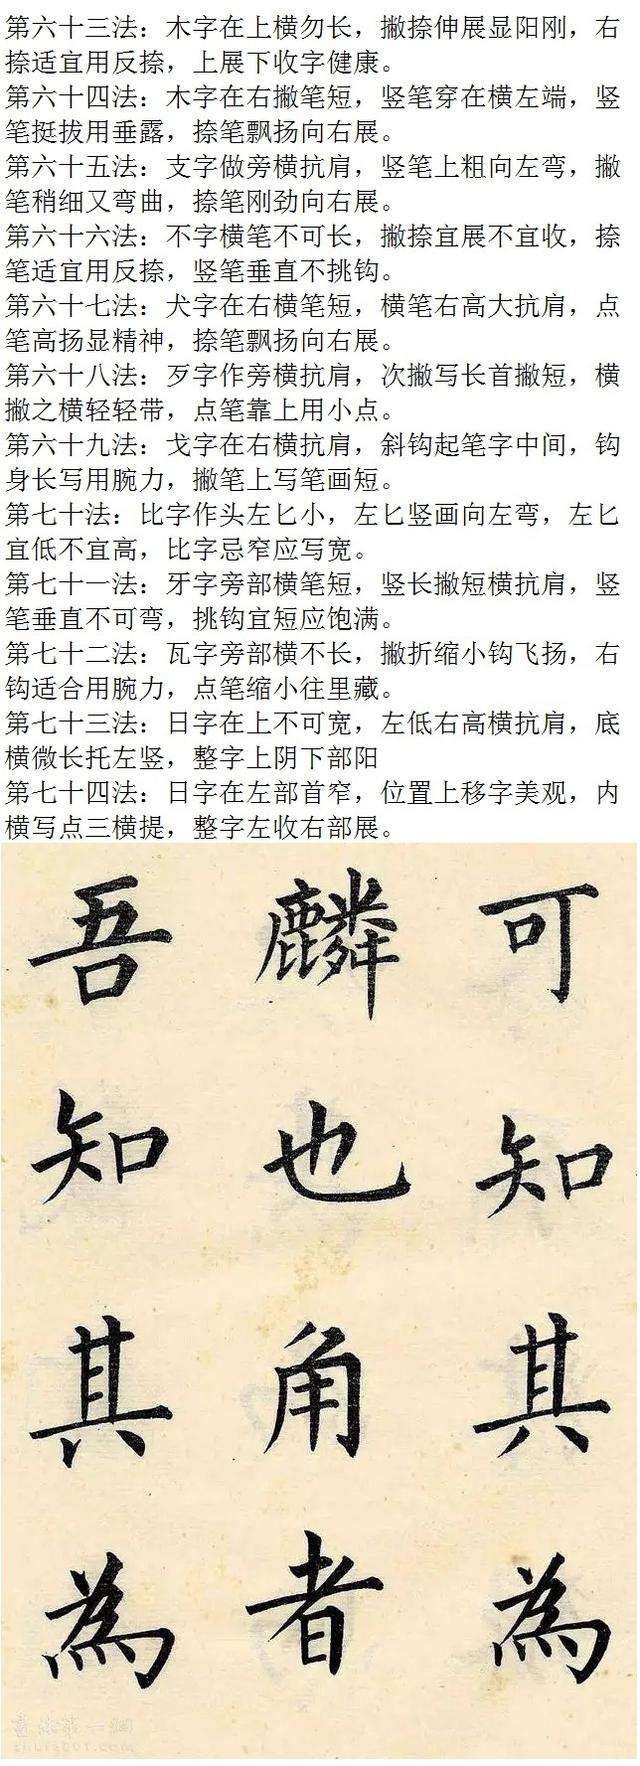 第六十三法：木字在上横勿长，撇捺伸展显阳刚，右
捺适宜用反捺，上展下收字健康。
第六十四法：木字在右撇笔短，竖笔穿在横左端，竖
笔挺拔用垂露，捺笔飘扬向右展。
第六十五法：支字做旁横抗肩，竖笔上粗向左弯，撇
笔稍细又弯曲，捺笔刚劲向右展。
第六十六法：不字横笔不可长，撇捺宜展不宜收，捺
笔适宜用反捺，竖笔垂直不挑钩。
第六十七法：犬字在右横笔短，横笔右高大抗肩，点
笔高扬显精神，捺笔飘扬向右展。
第六十八法：歹字作旁横抗肩，次撇写长首撇短，横
撇之横轻轻带，点笔靠上用小点。
第六十九法：戈字在右横抗肩，斜钩起笔字中间，钩
身长写用腕力，撇笔上写笔画短。
第七十法：比字作头左匕小，左匕竖画向左弯，左匕
宜低不宜高，比字忌窄应写宽。
第七十一法：牙字旁部横笔短，竖长撇短横抗肩，竖
笔垂直不可弯，挑钩宜短应饱满。
第七十二法：瓦字旁部横不长，撇折缩小钩飞扬，右
钩适合用腕力，点笔缩小往里藏。
第七十三法：日字在上不可宽，左低右高横抗肩，底
横微长托左竖，整字上阴下部阳
第七十四法：日字在左部首窄，位置上移字美观，内
横写点三横提，整字左收右部展。
可知其為
麟也角者
吾知其為